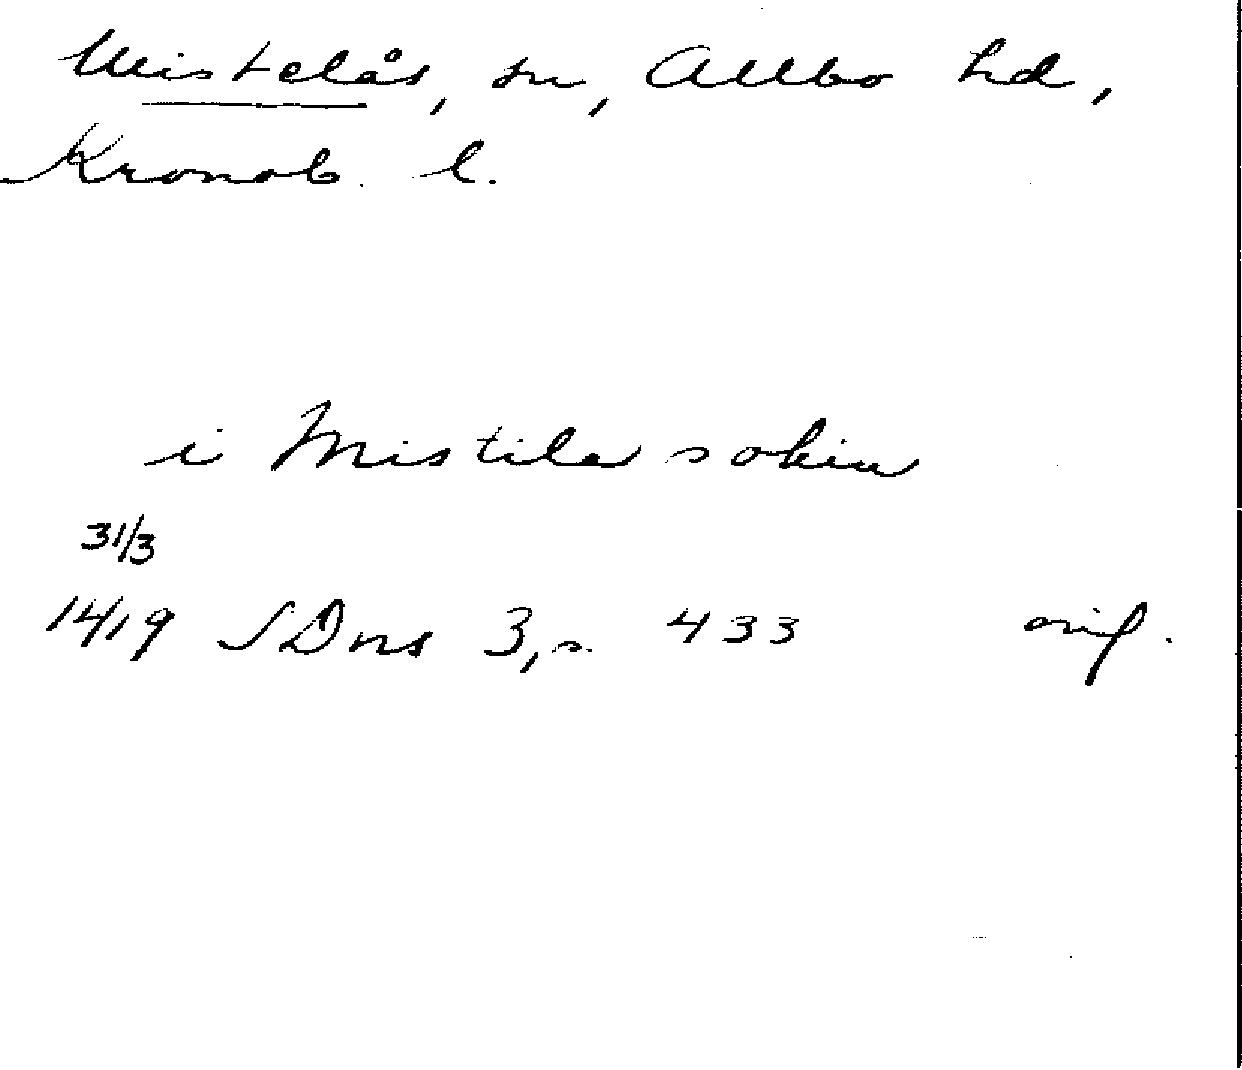 Mistelås, sn, Allbo hd,
Kronob. l.
i Mistila sokin
31/3
1419 SDns 3, s. 433 orig.